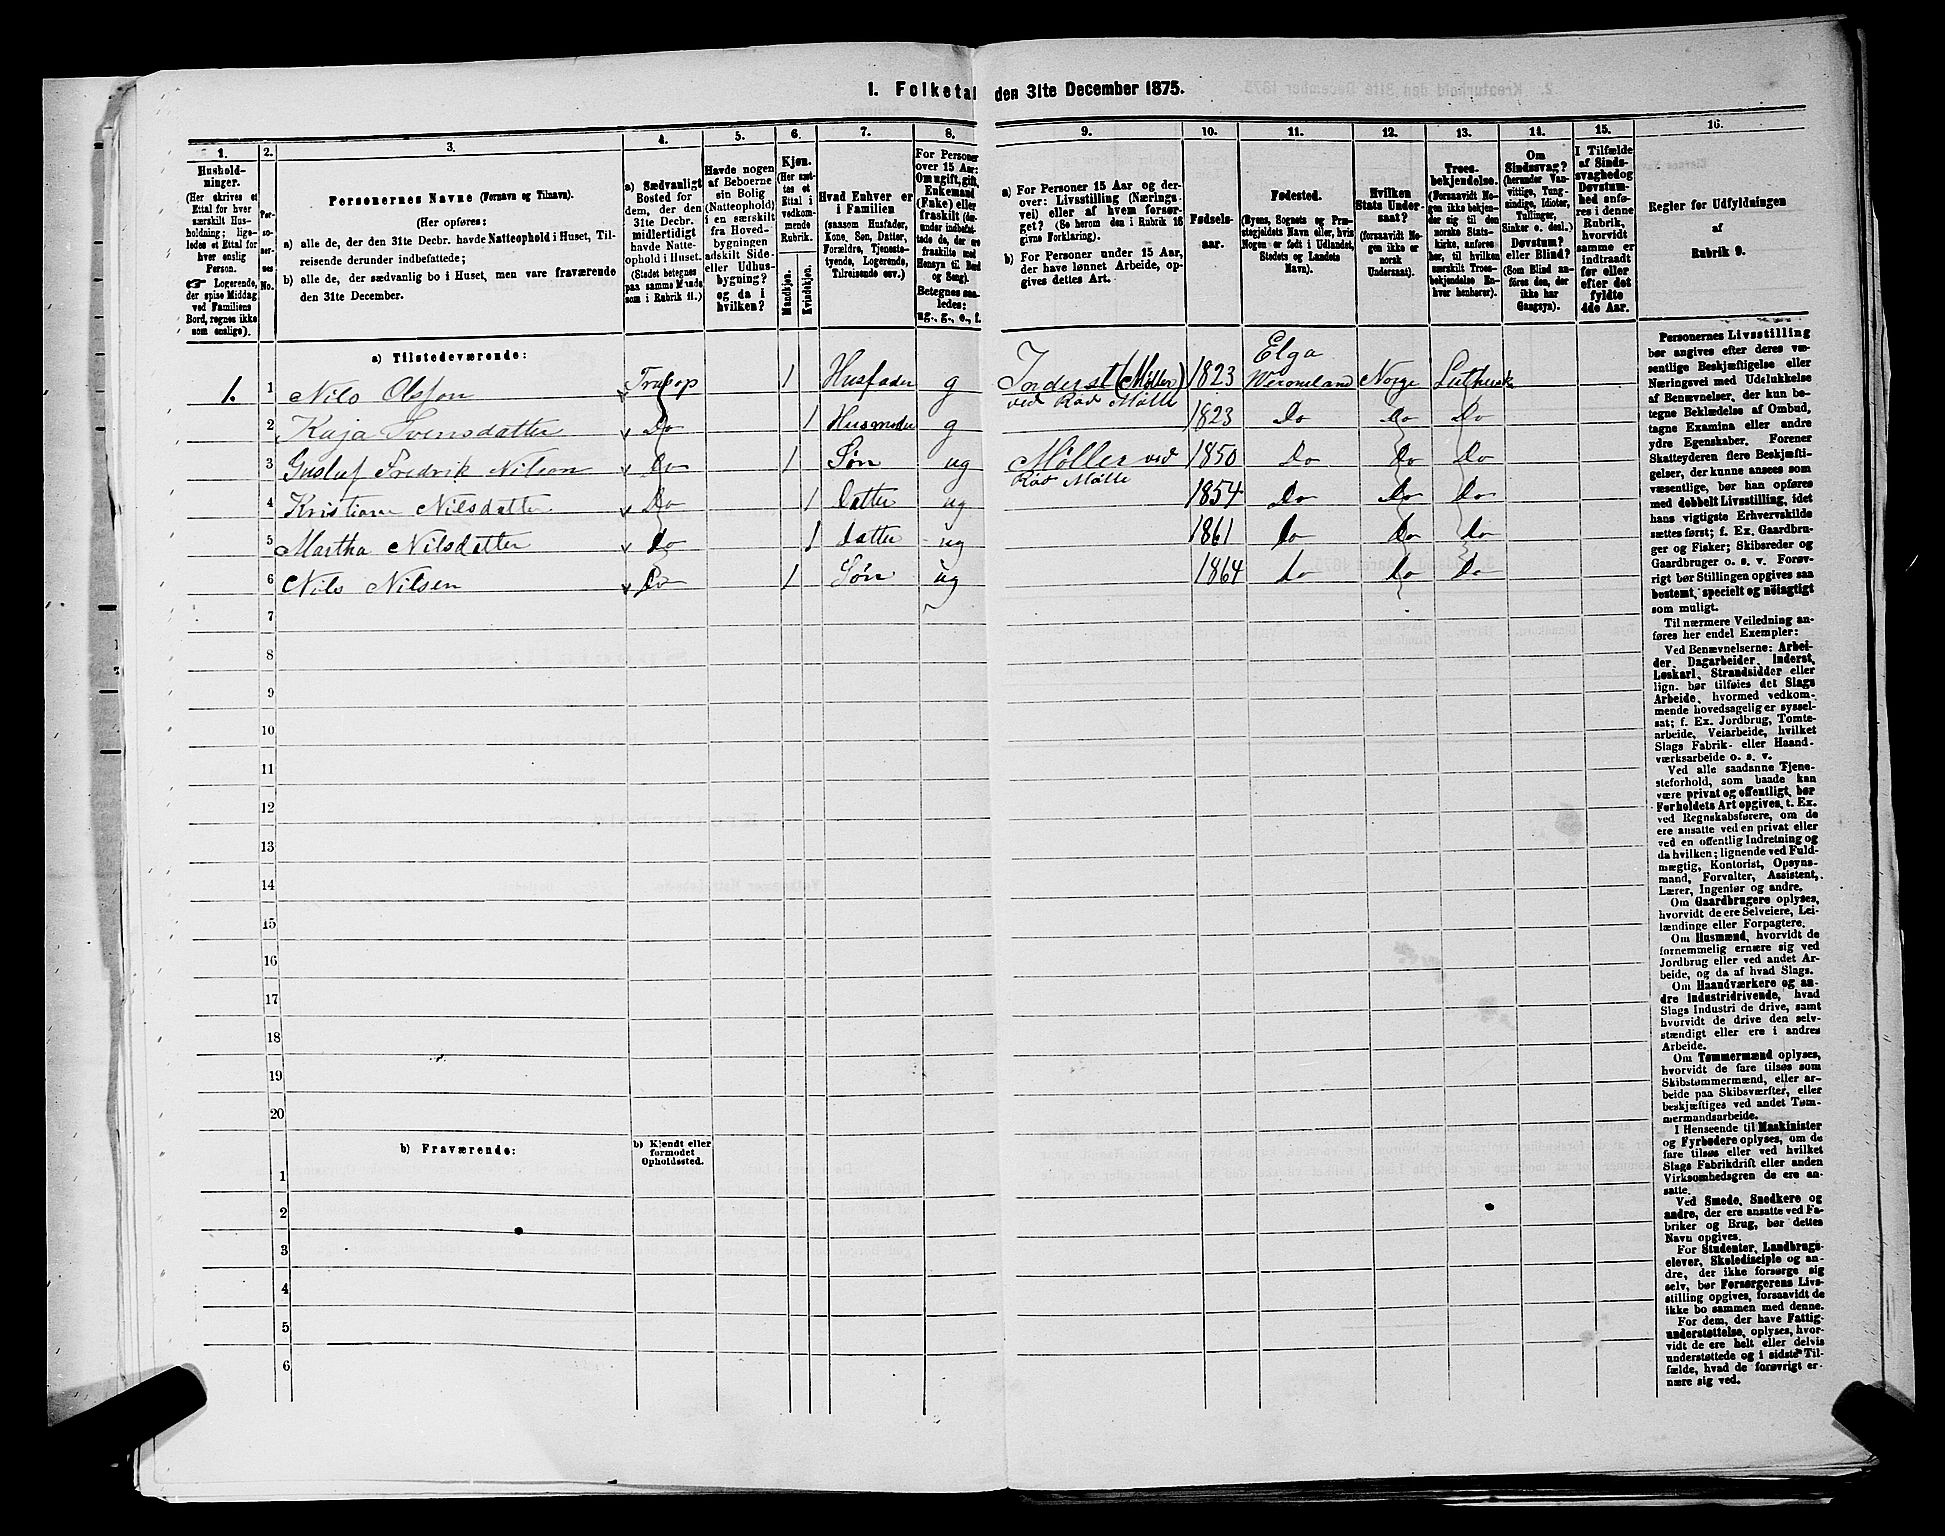 1. Folketal den 31te December 1875.
1.
Hushold-
ninger.
(Her skrives et
Ettal for hver
særskilt Hus-
holdning; lige-
ledes et Ettal for
hver enslig
Person.
☞ Logerende,
der spise Middag
ved Familiens
Bord, regnes ikke
som enslige).
2.
Per-
so-
ner-
nes
No.
3.
Personernes Navne (Fornavn og Tilnavn).
(Her opføres:
a) alle de, der den 31te Decbr. havde Natteophold i Huset, Til-
reisende derunder indbefattede;
b) alle de, der sædvanlig bo i Huset, men vare fraværende
den 31te December.
4.
a) Sædvanligt
Bosted for
dem, der den
31te Decbr.
midlertidigt
havde Natte-
ophold i Huset.
(Stedet betegnes
paa samme Maade
som i Rubrik 11.)
5.
Havde nogen
af Beboerne
sin Bolig
(Natteophold)
i en særskilt
fra Hoved-
bygningen
adskilt Side-
eller Udhus-
bygning?
og da i
hvilken?
6.
Kjøn.
(Her sæt-
tes et
Ettal i
vedkom-
mende
Rubrik.
Mandkjøn.
Kvindekjøn.
7.
Hvad Enhver er
i Familien
(saasom Husfader,
Kone, Søn, Datter,
Forældre, Tjeneste-
tyende, Logerende,
Tilreisende osv.)
8.
For Personer
over 15 Aar:
Om ugift, gift,
Enkemand
(Enke) eller
fraskilt (der-
under indbefat-
tede de, der ere
fraskilte med
Hensyn til Bord
og Seng).
Betegnes saa-
ledes:
ug., g., e., f.
9.
a) For Personer 15 Aar og der-
over: Livsstilling (Nærings-
vei) eller af hvem forsør-
get? (Se herom den i Rubrik 16
givne Forklaring).
b) For Personer under 15 Aar,
der have lønnet Arbeide, op-
gives dettes Art.
10.
Fødsels-
aar.
11.
Fødested.
(Byens, Sognets og Præ-
stegjeldets Navn eller, hvis
Nogen er født i Udlandet,
Stedets og Landets
Navn).
12.
Hvilken
Stats Under-
saat?
(forsaavidt No-
gen ikke er
norsk
Undersaat).
13.
Troes-
bekjendelse.
(Forsaavidt No-
gen ikke bekjen-
der sig til den
norske Stats-
kirke, anføres
her, til hvilken
særskilt Troes-
bekjendelse En-
hver henhører).
14.
Om
Sindssvag?
(herunder Van-
vittige, Tung-
sindige, Idioter,
Tullinger,
Sinker o. desl.)
Døvstum?
eller Blind?
(Som Blind an-
føres den, der
ikke har
Gangsyn).
15.
I Tilfælde
af Sinds-
svaghed og
Døvstum-
hed anfø-
res i denne
Rubrik,
hvorvidt
samme er
indtraadt
før eller
efter det
fyldte
4de Aar.
16.
Regler for Udfyldningen
af
Rubrik 9.
a) Tilstedeværende:
1. 1 Nils Olsson Trosop 1 Husfader g Inderst (Møller) ved Rød Mølle 1823 Elga Wermeland Norge Luthersk
2 Kaja Svensdatter Do 1 Husmoder g 1823 Do Do Do
3 Gustaf Fredrik Nilson Do 1 Søn ug Møller ved Rød Mølle 1850 Do Do Do
4 Kristiane Nilsdatter Do 1 Datter ug 1854 Do Do Do
5 Martha Nilsdatter Do 1 datter ug 1861 Do Do Do
6 Nils Nilsen Do 1 Søn ug 1864 do Do Do
7
8
9
10
11
12
13
14
15
16
17
18
19
20
b) Fraværende:
b) Kjendt eller
formodet
Opholdssted.
1
2
3
4
5
6
Personernes Livsstilling
bør angives efter deres væ-
sentlige Beskjæftigelse eller
Næringsvei med Udelukkelse
af Benævnelser, der kun be-
tegne Beklædelse af Ombud,
tagne Examina eller andre
ydre Egenskaber. Forener
Skatteyderen flere Beskjæfti-
gelser, der kunne ansees som
væsentlige, bør han opføres
med dobbelt Livsstilling, idet
hans vigtigste Erhvervskilde
sættes først; f. Ex. Gaardbru-
ger og Fisker; Skibsreder og
Gaardbruger o. s. v. Forøv-
rigt bør Stillingen opgives saa
bestemt, specielt og nøiagtigt
som muligt.
Til nærmere Veiledning an-
føres her endel Exempler:
Ved Benævnelserne: Arbei-
der, Dagarbeider, Inderst,
Løskarl, Strandsidder eller
lign. bør tilføies det Slags
Arbeide, hvormed vedkom-
mende hovedsagelig er syssel-
sat; f. Ex. Jordbrug, Tomte-
arbeide, Veiarbeide, hvilket
Slags Fabrik- eller Haand-
værksarbeide o. s. v.
Ved alle saadanne Tjene-
steforhold, som baade kan
være privat og offentligt, bør
Forholdets Art opgives, t. Ex.
ved Regnskabsførere, om de
ere ansatte ved en privat eller
ved en offentlig Indretning og
da hvilken; lignende ved Fuld-
mægtig, Kontorist, Opsyns-
mand, Forvalter, Assistent,
Lærer, Ingeniør og andre.
Om Gaardbrugere oplyses,
hvorvidt de ere Selveiere, Lei-
lændinge eller Forpagtere.
Om Husmænd, hvorvidt de
fornemmelig ernære sig ved
Jordbrug eller ved andet Ar-
beide, og da af hvad Slags.
Om Haandværkere og an-
dre Industridrivende, hvad
Slags Industri de drive, samt
hvorvidt de drive den selv-
stændigt eller ere i andres
Arbeide.
Om Tømmermænd oplyses,
hvorvidt de fare tilsøs som
Skibstømmermænd, eller ar-
beide paa Skibsværfter, eller
beskjæftiges ved andet Tøm-
mermandsarbeide.
I Henseende til Maskinister
og Fyrbødere oplyses, om de
fare tilsøs eller ved hvilket
Slags Fabrikdrift eller anden
Virksomhedsgren de ere an-
satte.
Ved Smede, Snedkere og
andre, der ere ansatte ved Fa-
briker og Brug, bør dettes
Navn opgives.
For Studenter, Landbrugs-
elever, Skoledisciple og an-
dre, der ikke forsørge sig
selv, bør Forsørgerens Livs-
stilling opgives, forsaavidt de
ikke bo sammen med denne.
For dem, der have Fattig-
understøttelse, oplyses, hvor-
vidt de ere helt eller delvis
understøttede og i sidste Til-
fælde, hvad de forøvrigt er-
nære sig ved.